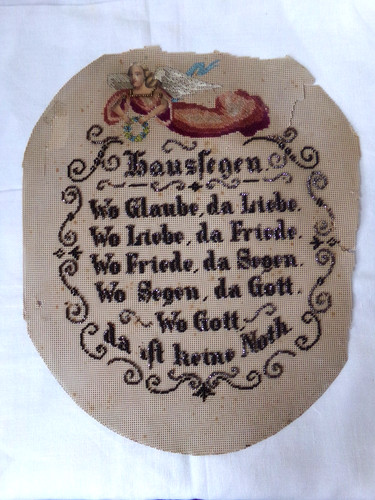 Haussegen.
Wo Glaube, da Liebe.
Wo Liebe, da Friede.
Wo Friede, da Segen.
Wo Segen, da Gott.
Wo Gott,
da ist keine Noth